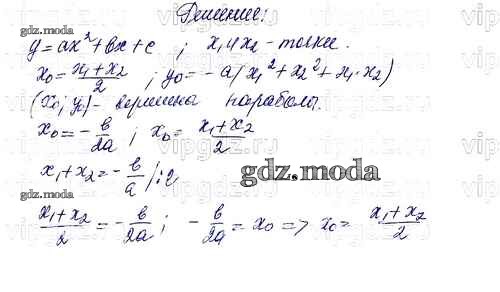 Решение:
gdz.moda
y = ax² + bx + c ; x₁ и x₂ - точки.
x₀ = (x₁ + x₂)/2 ; y₀ = -a(x₁² + x₂² + x₁·x₂)
(x₀; y₀) - вершины параболы.
x₀ = -b/2a ; x₀ = (x₁ + x₂)/2
x₁ + x₂ = -b/a |:2
gdz.moda
(x₁ + x₂)/2 = -b/2a ; -b/2a = x₀ => x₀ = (x₁ + x₂)/2
gdz.moda